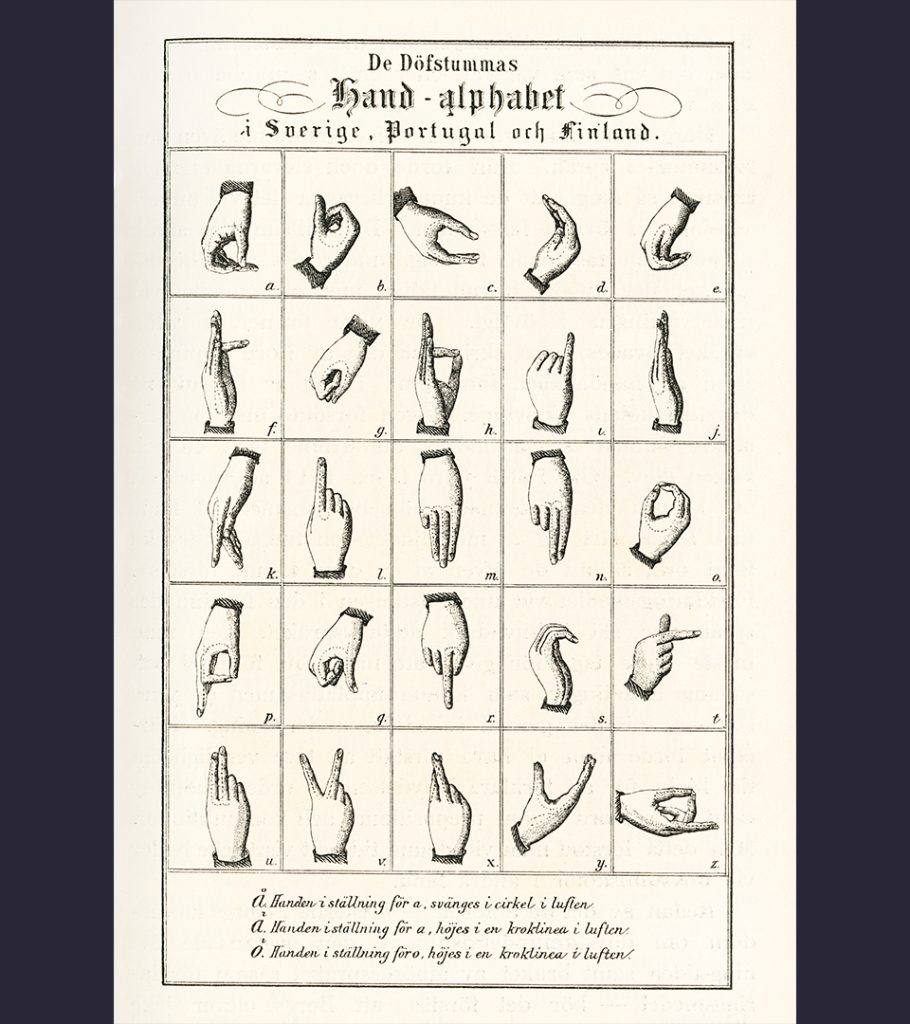 De Döfstummas
Hand-alphabet
i Sverige, Portugal och Finland.
a. b. c. d. e.
f. g. h. i. j.
k. l. m. n. o.
p. q. r. s. t.
u. v. x. y. z.
Å. Handen i ställning för a, svänges i cirkel i luften.
Ä. Handen i ställning för a, höjes i en kroklinea i luften.
Ö. Handen i ställning för o, höjes i en kroklinea i luften.